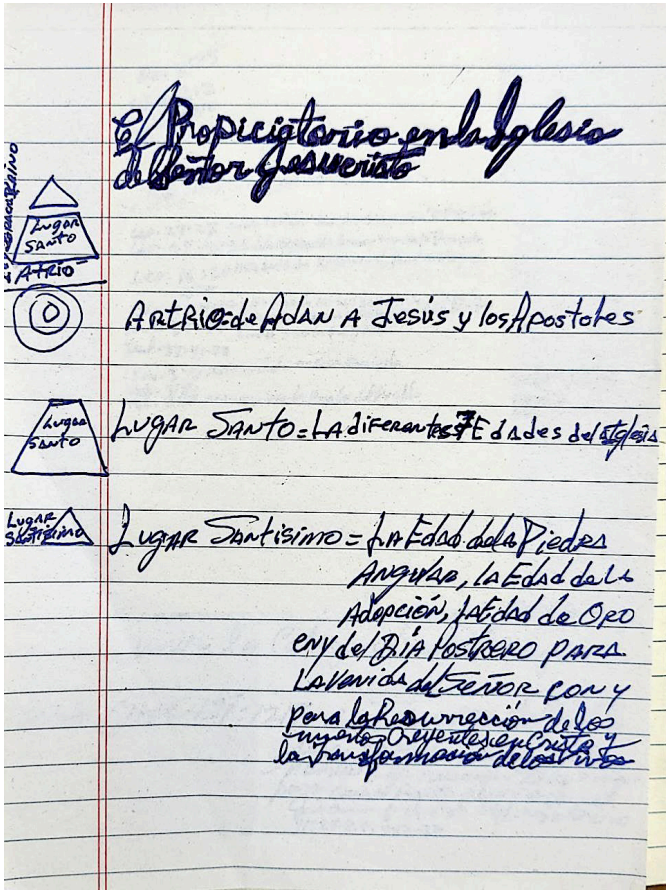 El Propiciatorio en la Iglesia
del Señor Jesucristo
Lugar
Santo
ATRIO
Artrio=de ADAN A Jesús y los Apostoles
Lugar
SANTO
LUGAR SANTO=LA diferentes 7 Edades del Iglesia
LUGAR
Santisimo
LUGAR SANTísimo = LA Edad de la Piedra
ANGULAR, la Edad de la
Adopción, la Edad de ORO
en y del DÍA POSTRERO PARA
LA Venida del SEÑOR CON y
para la Resurrección de los
muertos Creyentes en Cristo y
la transformación de los vivos